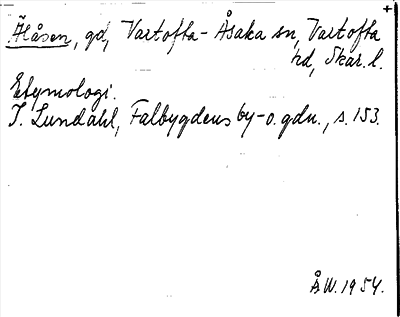 Älåsen, gd, Vartofta-Åsaka sn, Vartofta
hd, Skar. l.
Etymologi.
I. Lundahl, Falbygdens by- o. gdn., s. 153.
Å W. 1954.